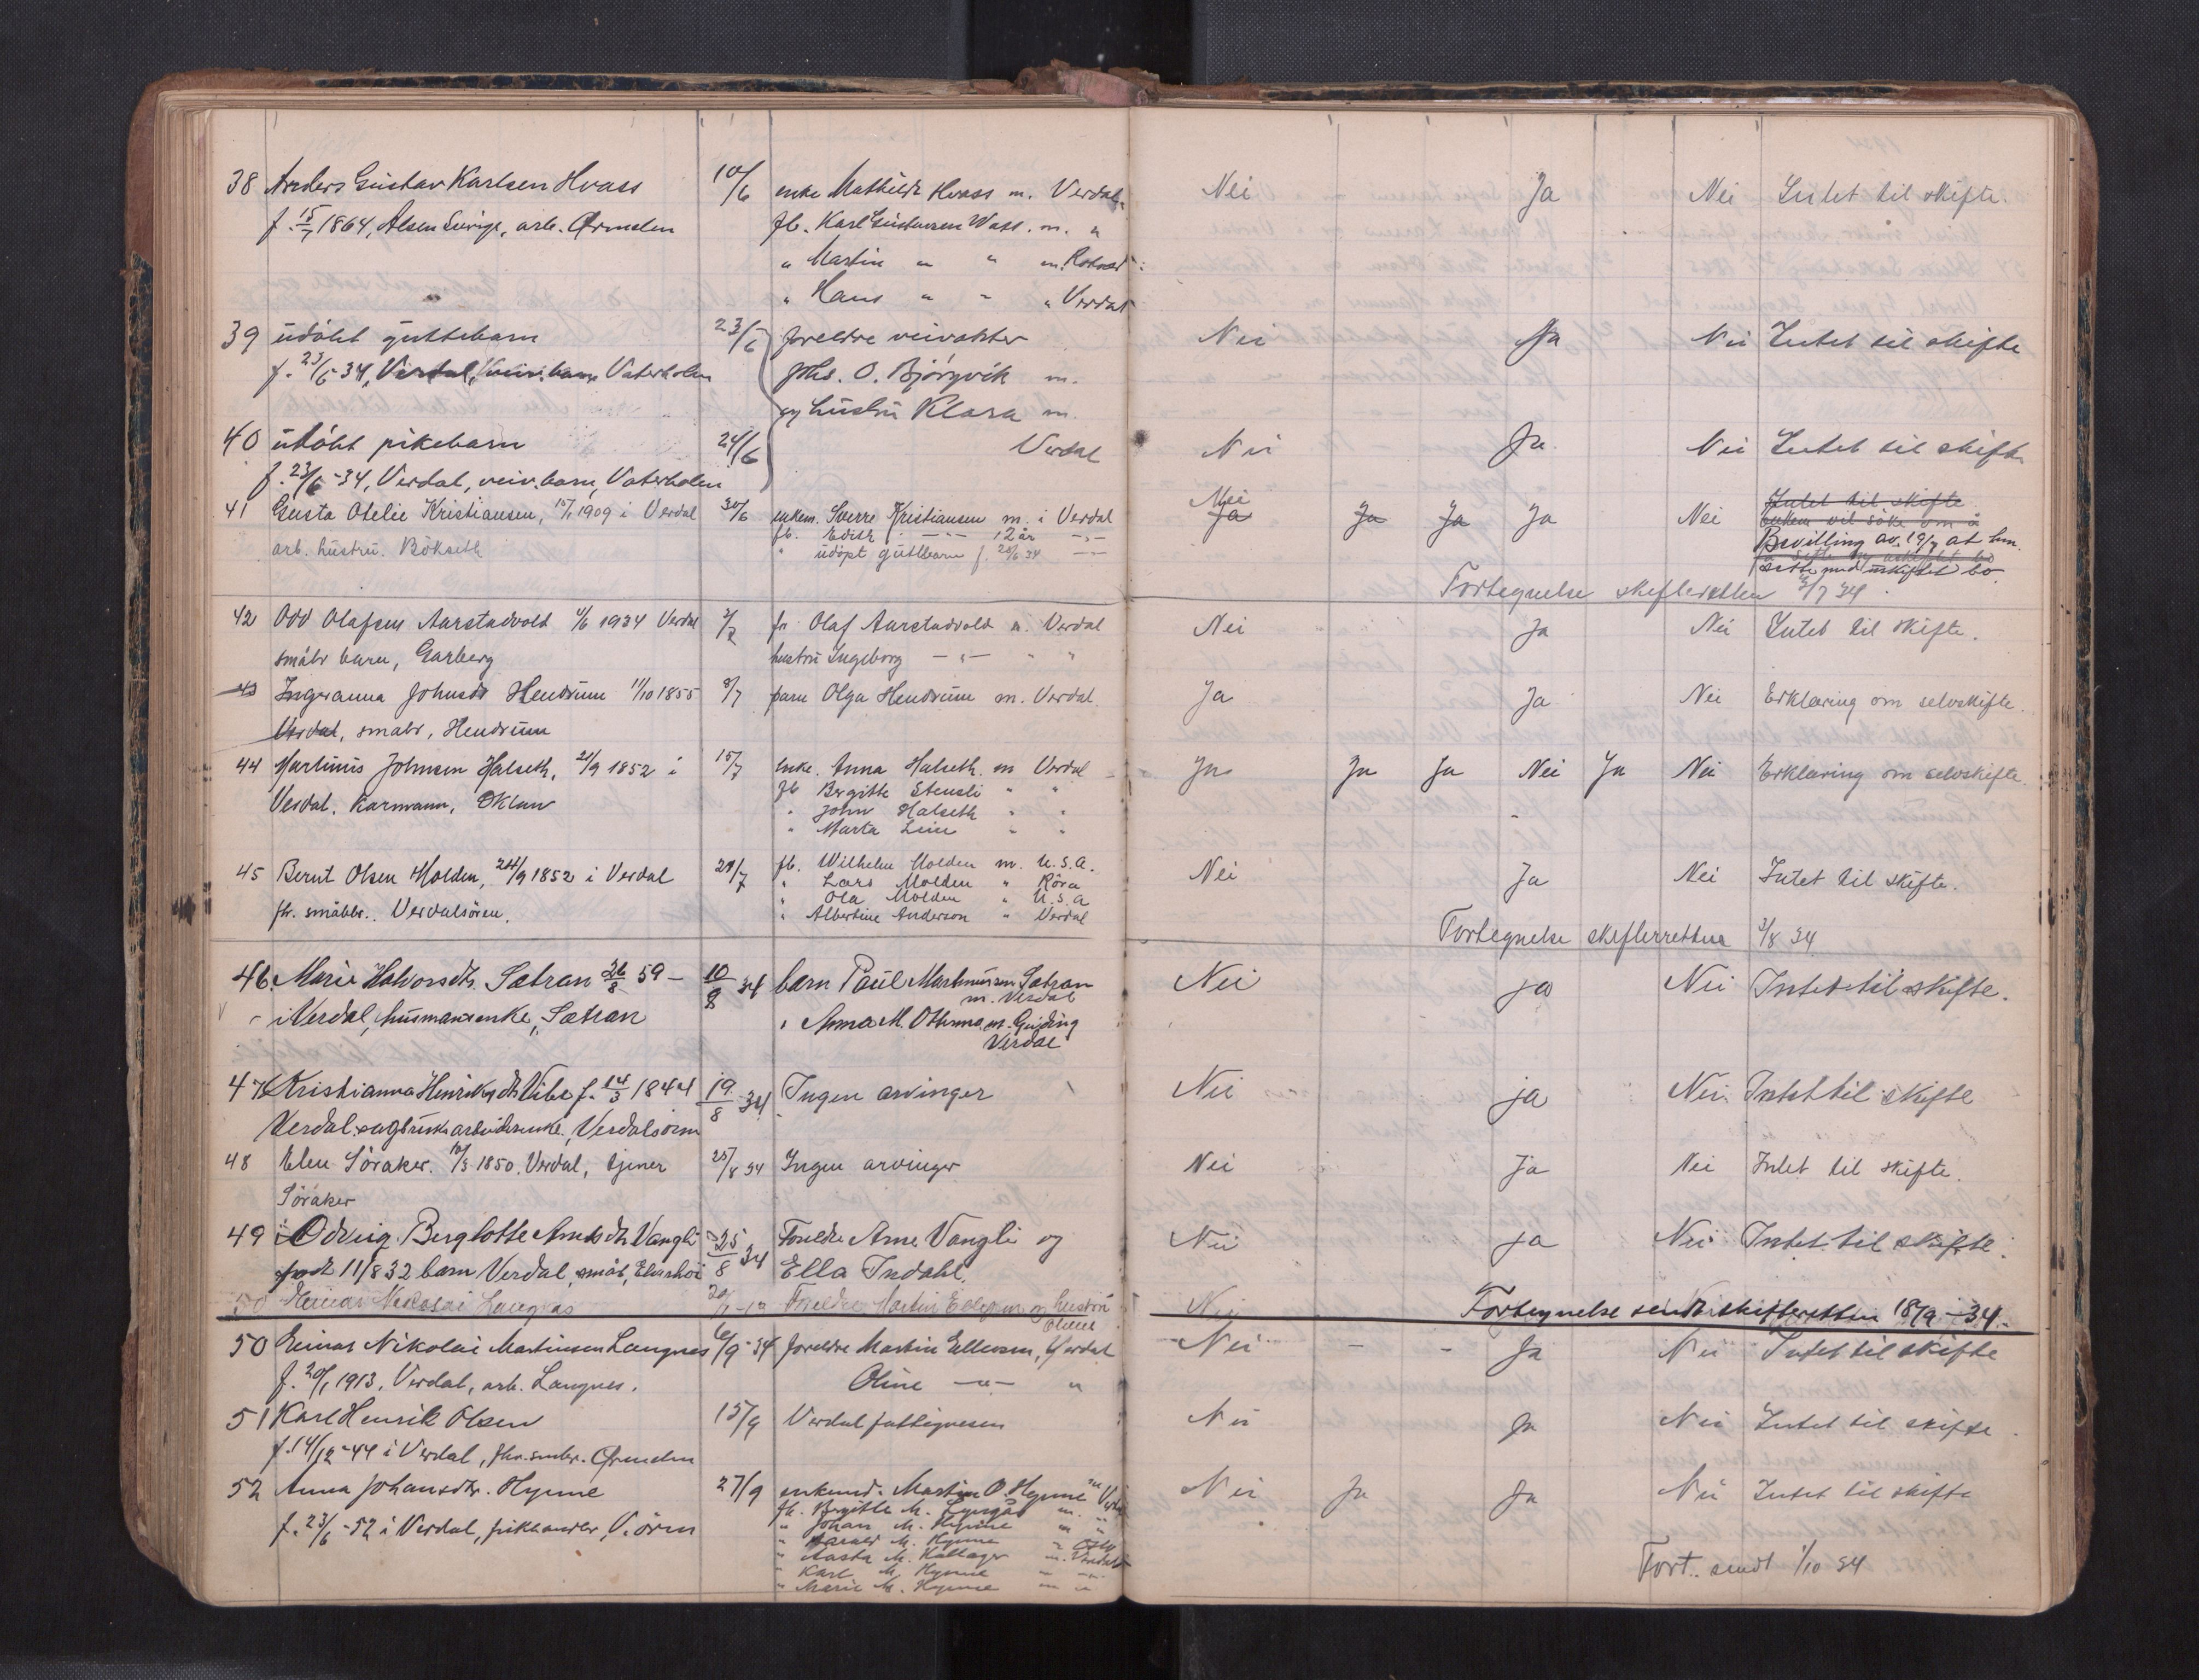 38 Anders Gustav Karlsen Hvass 10/6 enke Mathilde Hvass m. Verdal Nei Ja Nei Intet til skifte.
f. 15/7 1864, Alsen Sverige, arb. Ørmelen fb. Karl Gustavsen Wass. m. "
" Martin " " m.
" Hans " " " Verdal
39 udöbt guttebarn 23/6 foreldre veivokter Nei Ja Nei Intet til skifte
f. 23/6-34, Verdal, veiv. barn Vaterholm Johs. O. Björgvik m.
og hustru Klara m.
40 udöbt pikebarn 24/6 Verdal Nei Ja Nei Intet til skifte
f. 23/6-34, Verdal, veiv. barn, Vaterholm
41 Gusta Otelie Kristiansen, 15/1 1909 i Verdal 30/6 enkem. Sverre Kristiansen m. i Verdal Nei Ja Ja Ja Ja Nei Intet til skifte
enkem vil söke om å
arb. hustru. Bökseth fb. Edith - " - 12 år - " -
" udöpt guttbarn f. 28/6 34 - " -
Bevilling av. 19/7 at han
sitte med uskiftet bo.
Fortegnelse skifteretten 2/7 34
42 Odd Olafsen Aarstadvold 4/6 1934 Verdal 3/7 fr Olaf Aarstadvold m. Verdal Nei Ja Nei Intet til skifte.
småbr barn, Garberg hustru Ingeborg - " - " "
43 Ingeranna Johnsdt Hendrum 11/10 1855 8/7 barn Olga Hendrum m. Verdal. Ja Ja Nei Erklæring om selvskifte.
Verdal, småbr, Hendrum
44 Martinus Johnsen Halseth, 21/9 1852 i 15/7 Enke. Anna Halseth m Verdal Ja Ja Ja Nei Ja Nei Erklæring om selvskifte
Verdal. Karmann, Oklan fb Bergitte Stensli " "
" John Halseth " "
" Marta Lein " "
45 Bernt Olsen Molden, 24/9 1852 i Verdal 29/7 fb. Wilhelm Molden m. U.S.A. Nei Ja Nei Intet til skifte.
" Lars Molden " Röra
fh. småbbr. Verdalsören. " Ola Molden " U.S.A
" Albertine Anderson " Verdal
Fortegnelse skifterretten 3/8 34
46. Marie Halvorsdtr. Sætran 26/8 59 - 10/8 34 barn Paul Martinussen Sætran Nei ja Nei Intet til skifte.
m. Verdal
i Verdal, husmannsenke, Sætran " Anna M. m.
Verdal
47 Kristianna Henriksdt Vibe f. 14/3 1844 19/8 34 Ingen arvinger Nei ja Nei Intet til skifte
Verdal. sagbruksarbeiderenke, Verdalsören
48 Elen Söråker. 10/3 1850, Verdal, tjener 25/8 34 Ingen arvinger Nei Ja Nei Intet til skifte.
Söråker
49 Odveig Berglotte Arnesdt Vangli 25/8 34 Foreldre Arne Vangli og Nei ja Nei Intet til skifte.
födt 11/8 32 barn Verdal, småb, Ella Indahl.
50 Einar Nikolai Langnes Foreldre Martin Ellevsen og hustru Nei Fortegnelse sendt skifteretten 18/9 - 34.
Oline
50 Einar Nikolai Martinsen Langnes 6/9-34 foreldre Martin Ellevsen, Verdal Nei - - Ja Nei Intet til skifte
f. 20/1 1913, Verdal, arb. Langnes. Oline - " - "
51 Karl Henrik Olsen 15/9 Verdal fattigvesen Nei Ja Nei Intet til skifte.
f. 14/12-44 i Verdal, Ørmelen
52 Anna Johansdtr. Hynne 27/9 enkemd. Martin O. Hynne m Verdal Nei Ja Ja Nei Intet til skifte
fb. Bergitte M. Lyngås m. "
f. 23/6-52 i Verdal, V. ören " Johan M. Hynne m "
" Harald M. Hynne " Oslo
" Aasta M. Kallager m. Verdal
" Karl M. Hynne " - " -
" Marie M. Hynne m "
Fort. sendt 1/10 34